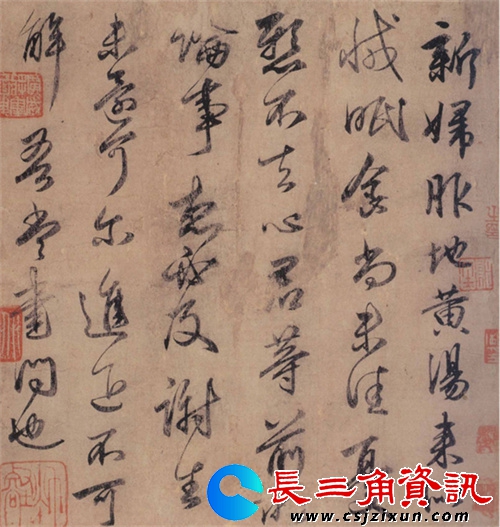 新婦服地黄湯来似
減眠食尚未佳憂
懸不去心君等前所
論事想必及謝生
未還可尔進退不可
解吾當書問也
長三角資訊
www.csjzixun.com